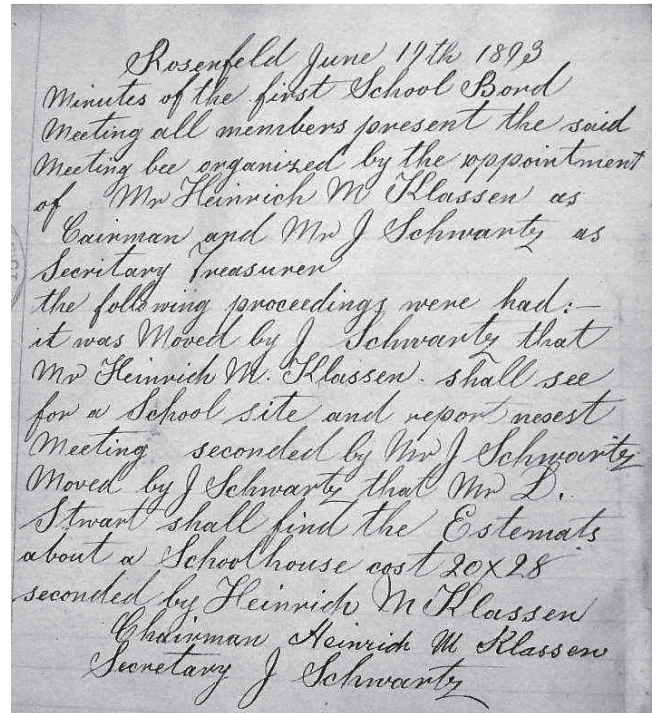 Rosenfeld June 17th 1893
Minutes of the first School Bord
Meeting all members present the said
Meeting bee organized by the appointment
of Mr Heinrich M Klassen as
Cairman and Mr J Schwartz as
Secritary Treasurer
the following proceedings were had:—
it was Moved by J Schwartz that
Mr Heinrich M. Klassen. shall see
for a School site and report nesest
Meeting seconded by Mr J Schwartz
Moved by J Schwartz that Mr D.
Stwart shall find the Estemats
about a Schoolhouse cost 20x28
seconded by Heinrich M Klassen
Chairman Heinrich M Klassen
Secretary J Schwartz